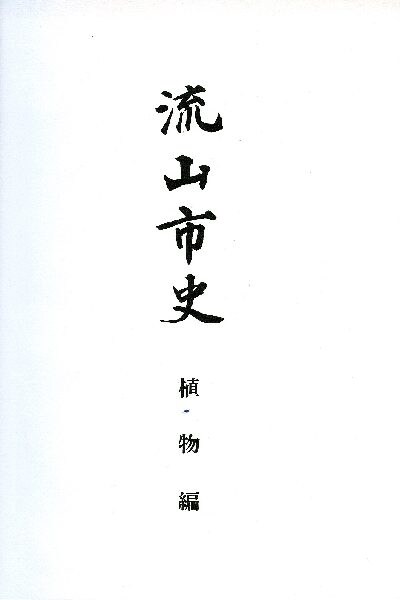 流山市史
植物編